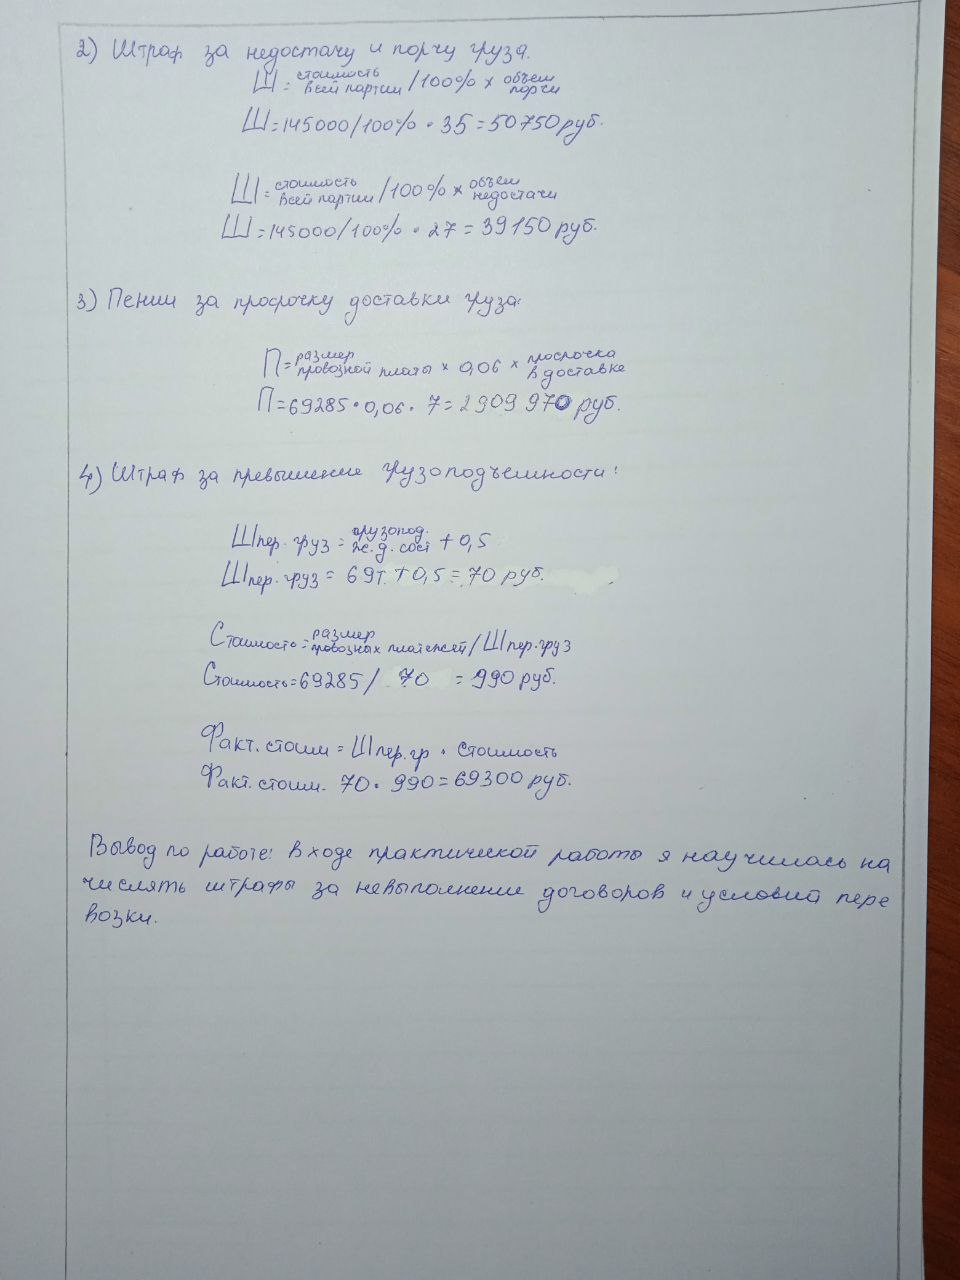 2) Штраф за недостачу и порчу груза.
Ш = стоимость всей партии / 100% × объем порчи
Ш = 145000/100% · 35 = 50750 руб.
Ш = стоимость всей партии / 100% × объем недостачи
Ш = 145000/100% · 27 = 39150 руб.
3) Пении за просрочку доставки груза:
П = размер провозной платы × 0,06 × просрочка в доставке
П = 69285 · 0,06 · 7 = 2909 970 руб.
4) Штраф за превышение грузоподъемности:
Шпер. груз = грузопод. ж.д. сост + 0,5
Шпер. груз = 69т. + 0,5 = 70 руб.
Стоимость = размер провозных платежей / Шпер. груз
Стоимость = 69285 / 70 = 990 руб.
Факт. стоим = Шпер. гр · стоимость
Факт. стоим. 70 · 990 = 69300 руб.
Вывод по работе: в ходе практической работы я научилась на
числять штрафы за невыполнение договоров и условий пере
возки.